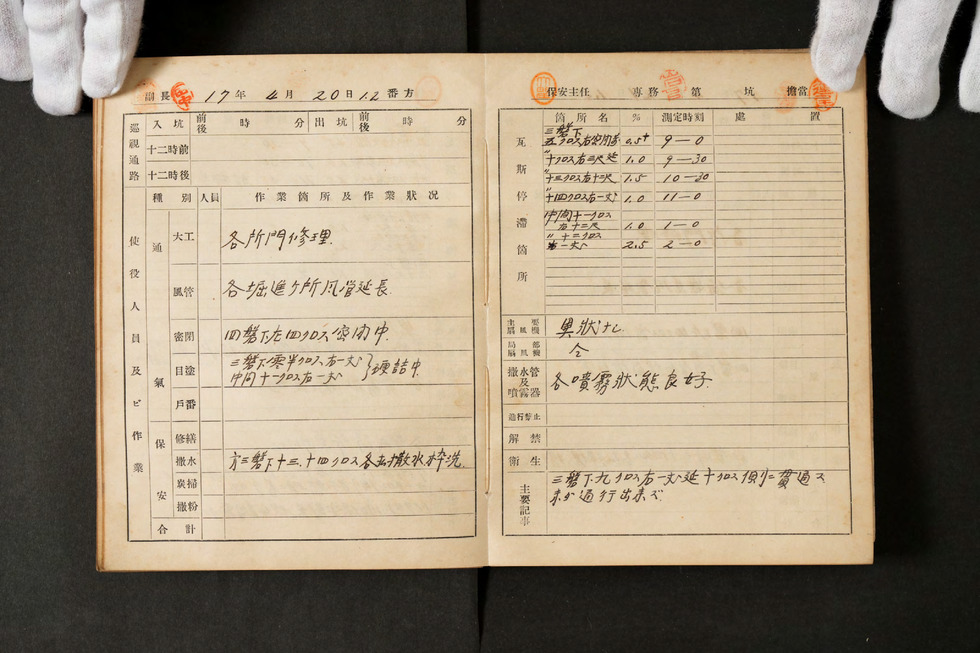 副長 17年 4月 20日 1.2番方
巡視通路 入坑 前後 時 分 出坑 前後 時 分
十二時前
十二時後
使役人員及ビ作業 種別 人員 作業箇所及作業狀况
通氣
大工 各所門修理.
風管 各堀進ヶ所風管延長
密閉 四盤下左四クロス密閉中.
目塗 三盤下零半クロス右一丈
中間十一クロス右一丈 硬詰中
戸番
保安
修繕
撒水 方三盤下十三.十四クロス各払撒水枠洗.
炭掃
撒粉
合計
保安主任 専務 第 坑 擔當
瓦斯停滯箇所 箇所名 % 測定時刻 處置
三盤下
五クロス右 0.5+ 9—0
〃十クロス右三尺延 1.0 9—30
〃十三クロス右十二尺 1.5 10—30
〃十四クロス右一丈 1.0 11—0
中間十一クロス
右十二尺 1.0 1—0
〃十二クロス
右一丈 2.5 2—0
主要扇風機 異狀ナし
局部扇風機 仝
撒水管及噴霧器 各噴霧狀態良好.
通行禁止
解禁
衛生
主要記事 三盤下九クロス右一丈延十クロス側ニ貫通ス
未ダ通行出来ズ